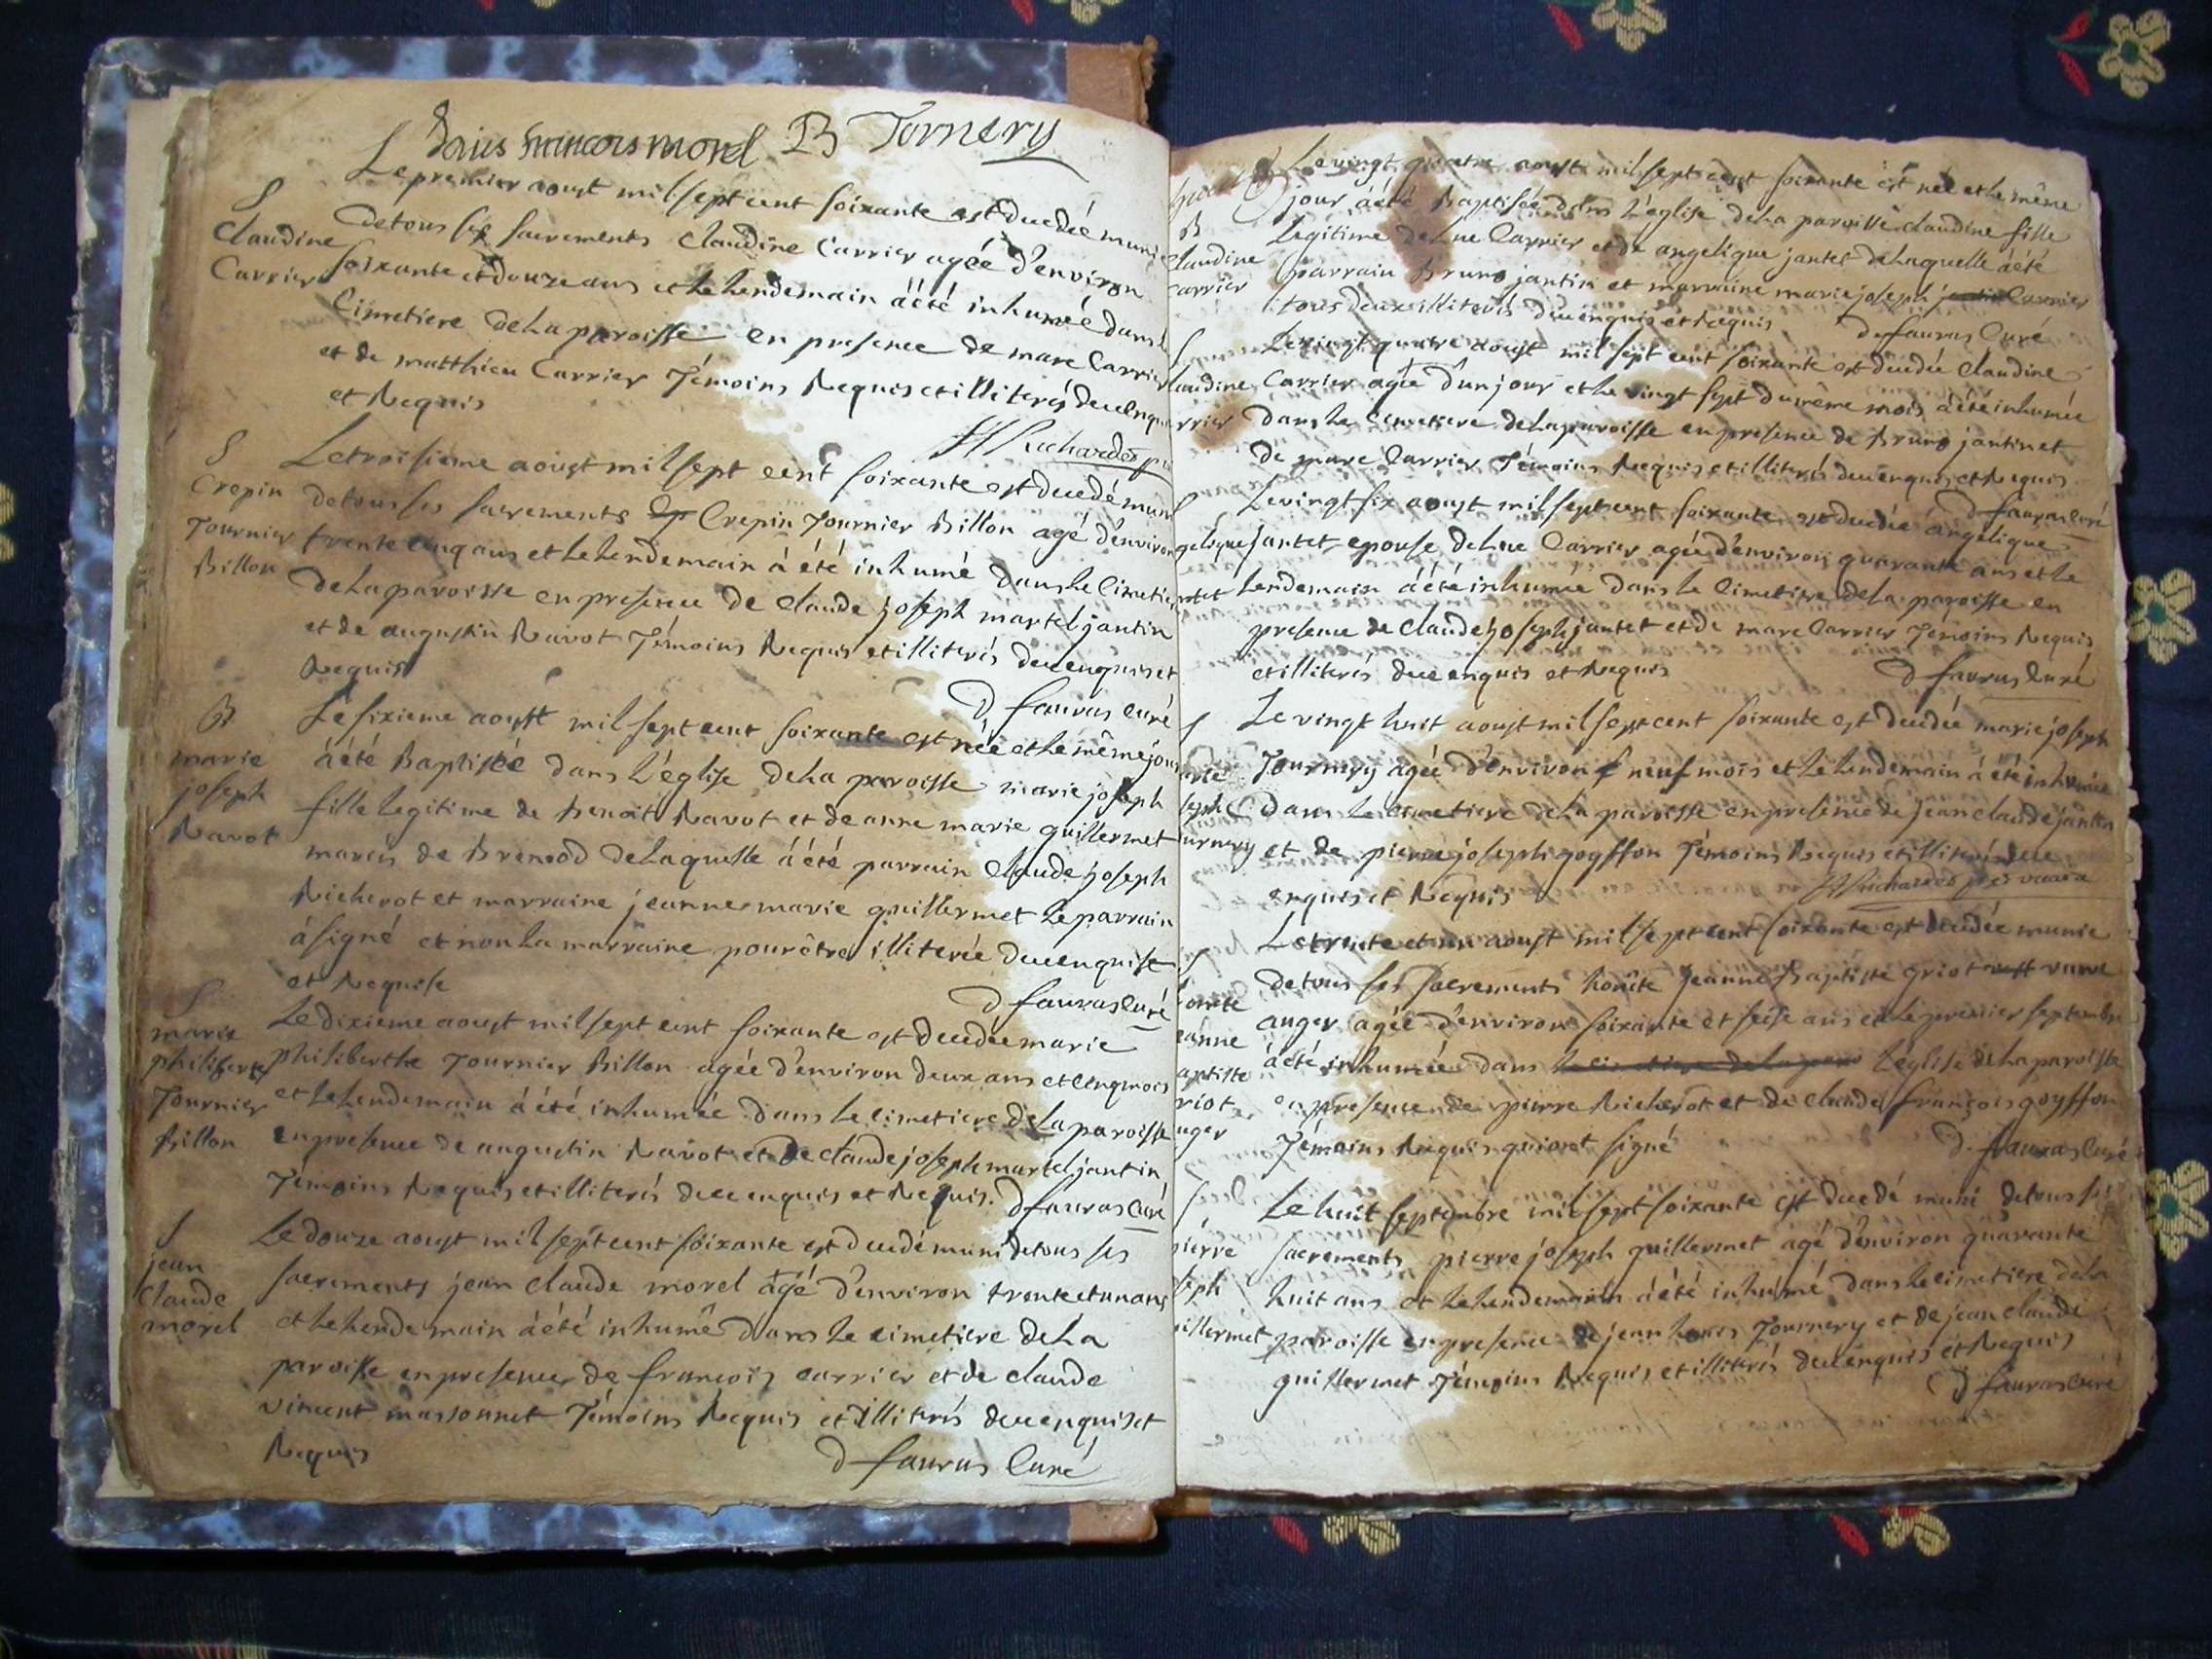 francois morel B Tornery
Le premier aoust mil sept cent soixante est decedée munie
S
Claudine
Carrier
de tous ses sacrements Claudine Carrier agée d'environ
soixante et douze ans et le lendemain à été inhumée dans le
Cimetiere de la paroisse en presence de marc Carrier
et de matthieu Carrier Témoins Requis et illiterés de ce enquis
et Requis
S
Crepin
Tournier
Billon
Le troisieme aoust mil sept cent soixante est decedé muni
de tous ses sacrements Crepin Tournier Billon agé d'environ
trente cinq ans et le lendemain à été inhumé dans le Cimetiere
de la paroisse en presence de claude joseph martel jantin
et de augustin Ravot Témoins Requis et illiterés de ce enquis et
Requis
d fauras curé
B
marie
joseph
Ravot
Le sixieme aoust mil sept cent soixante est née et le même jour
à été Baptisée dans L'eglise de La paroisse marie joseph
fille legitime de benoit Ravot et de anne marie guillermet
mariés de Brenod de laquelle à été parrain Claude joseph
Richerot et marraine jeanne marie guillermet le parrain
à signé et non La marraine pour être illiterée de ce enquise
et Requise
d fauras Curé
S
marie
philiberte
Tournier
Billon
Le dixieme aoust mil sept cent soixante est decedée marie
philiberthe Tournier Billon agée d'environ deux ans et cinq mois
et le lendemain à été inhumée dans le cimetiere de La paroisse
en presence de augustin Ravot et de claude joseph martel jantin
Témoins Requis et illiterés de ce enquis et Requis. d fauras Curé
S
jean
Claude
morel
Le douze aoust mil sept cent soixante est decedé muni de tous ses
sacrements jean claude morel agé d'environ trente et un ans
et le lendemain à été inhumé dans le cimetiere de La
paroisse en presence de francois carrier et de claude
vincent massonnet Témoins Requis et illiterés de ce enquis et
Requis
d fauras Curé
Le vingt quatre aoust mil sept cent soixante est née et le même
B
Claudine
Carrier
jour à été Baptisée dans L'eglise de La paroisse claudine fille
Legitime de Luc Carrier et de angelique jantet de Laquelle à été
parrain Bruno jantin et marraine marie joseph Carrier
tous deux illiterés de ce enquis et Requis d fauras Curé
S
Claudine
rrier
Le vingt quatre aoust mil sept cent soixante est decedée Claudine
Carrier agée d'un jour et le vingt sept du même mois à été inhumée
dans le cimetiere de La paroisse en presence de Bruno jantin et
de marc Carrier Témoins Requis et illiterés de ce enquis et Requis
d fauras Curé
S
gelique
ntet
Le vingt six aoust mil sept cent soixante est decedée angelique
jantet epouse de Luc Carrier agée d'environ quarante ans et le
lendemain à été inhumée dans le Cimetiere de La paroisse en
presence de Claude joseph jantet et de marc Carrier Témoins Requis
et illiterés de ce enquis et Requis d fauras Curé
S
arie
seph
urnery
Le vingt huit aoust mil sept cent soixante est decedée marie joseph
Tournery agée d'environ neuf mois et le lendemain à été inhumée
dans le cimetiere de La paroisse en presence de jean claude jantin
et de pierre joseph goyffon Témoins Requis et illiterés de ce
enquis et Requis
S
eanne
aptiste
riot
uger
Le trente et un aoust mil sept cent soixante est decedée munie
de tous ses sacrements honête jeanne Baptiste griot veuve
auger agée d'environ soixante et seise ans et le premier septembre
à été inhumée dans L'eglise de La paroisse
en presence de pierre Richerot et de claude françois goyffon
Témoins Requis qui ont signé
d. fauras Curé
S
pierre
seph
illermet
Le huit septembre mil sept soixante est decedé muni de tous ses
sacrements pierre joseph guillermet agé d'environ quarante
huit ans et le lendemain à été inhumé dans le cimetiere de La
paroisse en presence de jean Louis Tournery et de jean claude
guillermet Témoins Requis et illiterés de ce enquis et Requis
d fauras curé